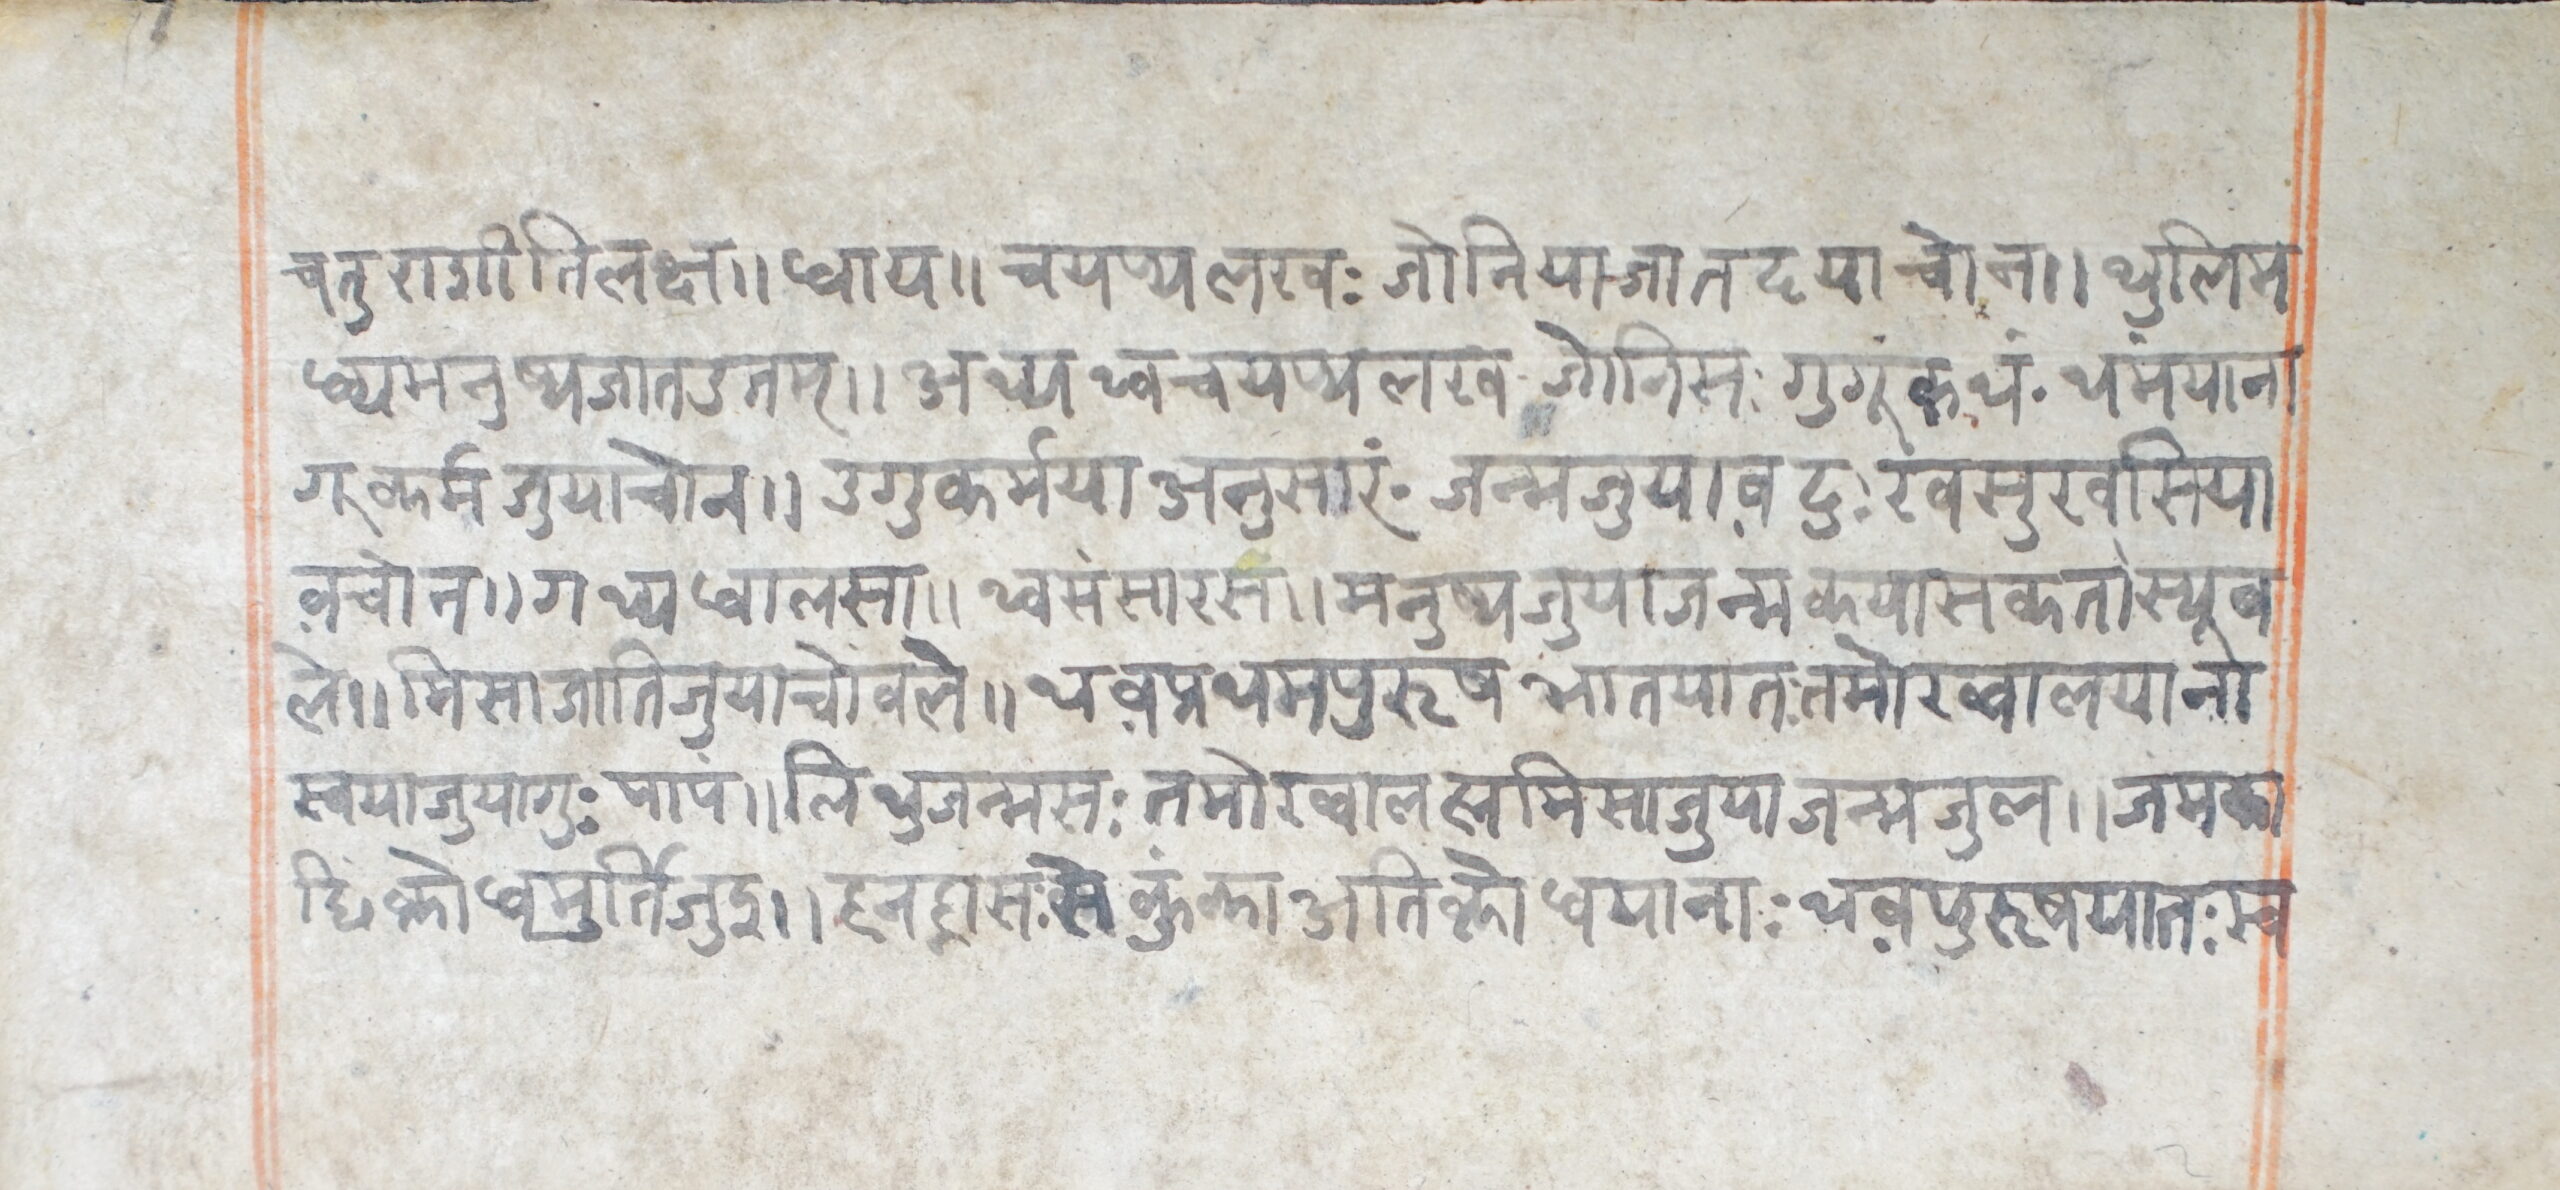 चतुराशीतिलक्ष॥ धाय॥ चयप्यलखः जोनियाजातदयाचोन॥ थुलिम
ध्यमनुष्यजातउतम्॥ अथ्य थ्वचयप्यलख जोनिसः गुगूंकथं॰ थमंयाना
गूकर्मजुयाचोन॥ उगुकर्मया अनुसारं॰ जन्मजुया व़ दुःखसुखसिया
व़चोन॥ गथ्य धालसा॥ थ्वसंसारस॥ मनुष्यजुयाजन्मकयासकतांस्यूव
ले॥ मिसाजातिजुयाचोंवले॥ थव़प्रथमपुरूष भातयातःतमोखालयाना
स्वयाजुयागुः पापं॥ लिथुजन्मसः तमोखाललमिसाजुयाजन्मजुल॥ जमका
हिं क्रोधमुर्तिजुइ॥ हनहासःसे कुंका अतिक्रोधयानाः थव़पुरूषयातः स्व